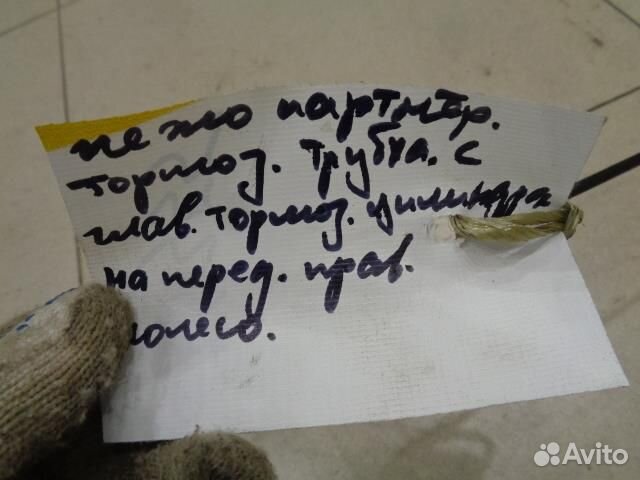 пежо партнёр.
тормоз. трубка. с
глав. тормоз. цилиндра
на перед. прав.
колесо.
Avito